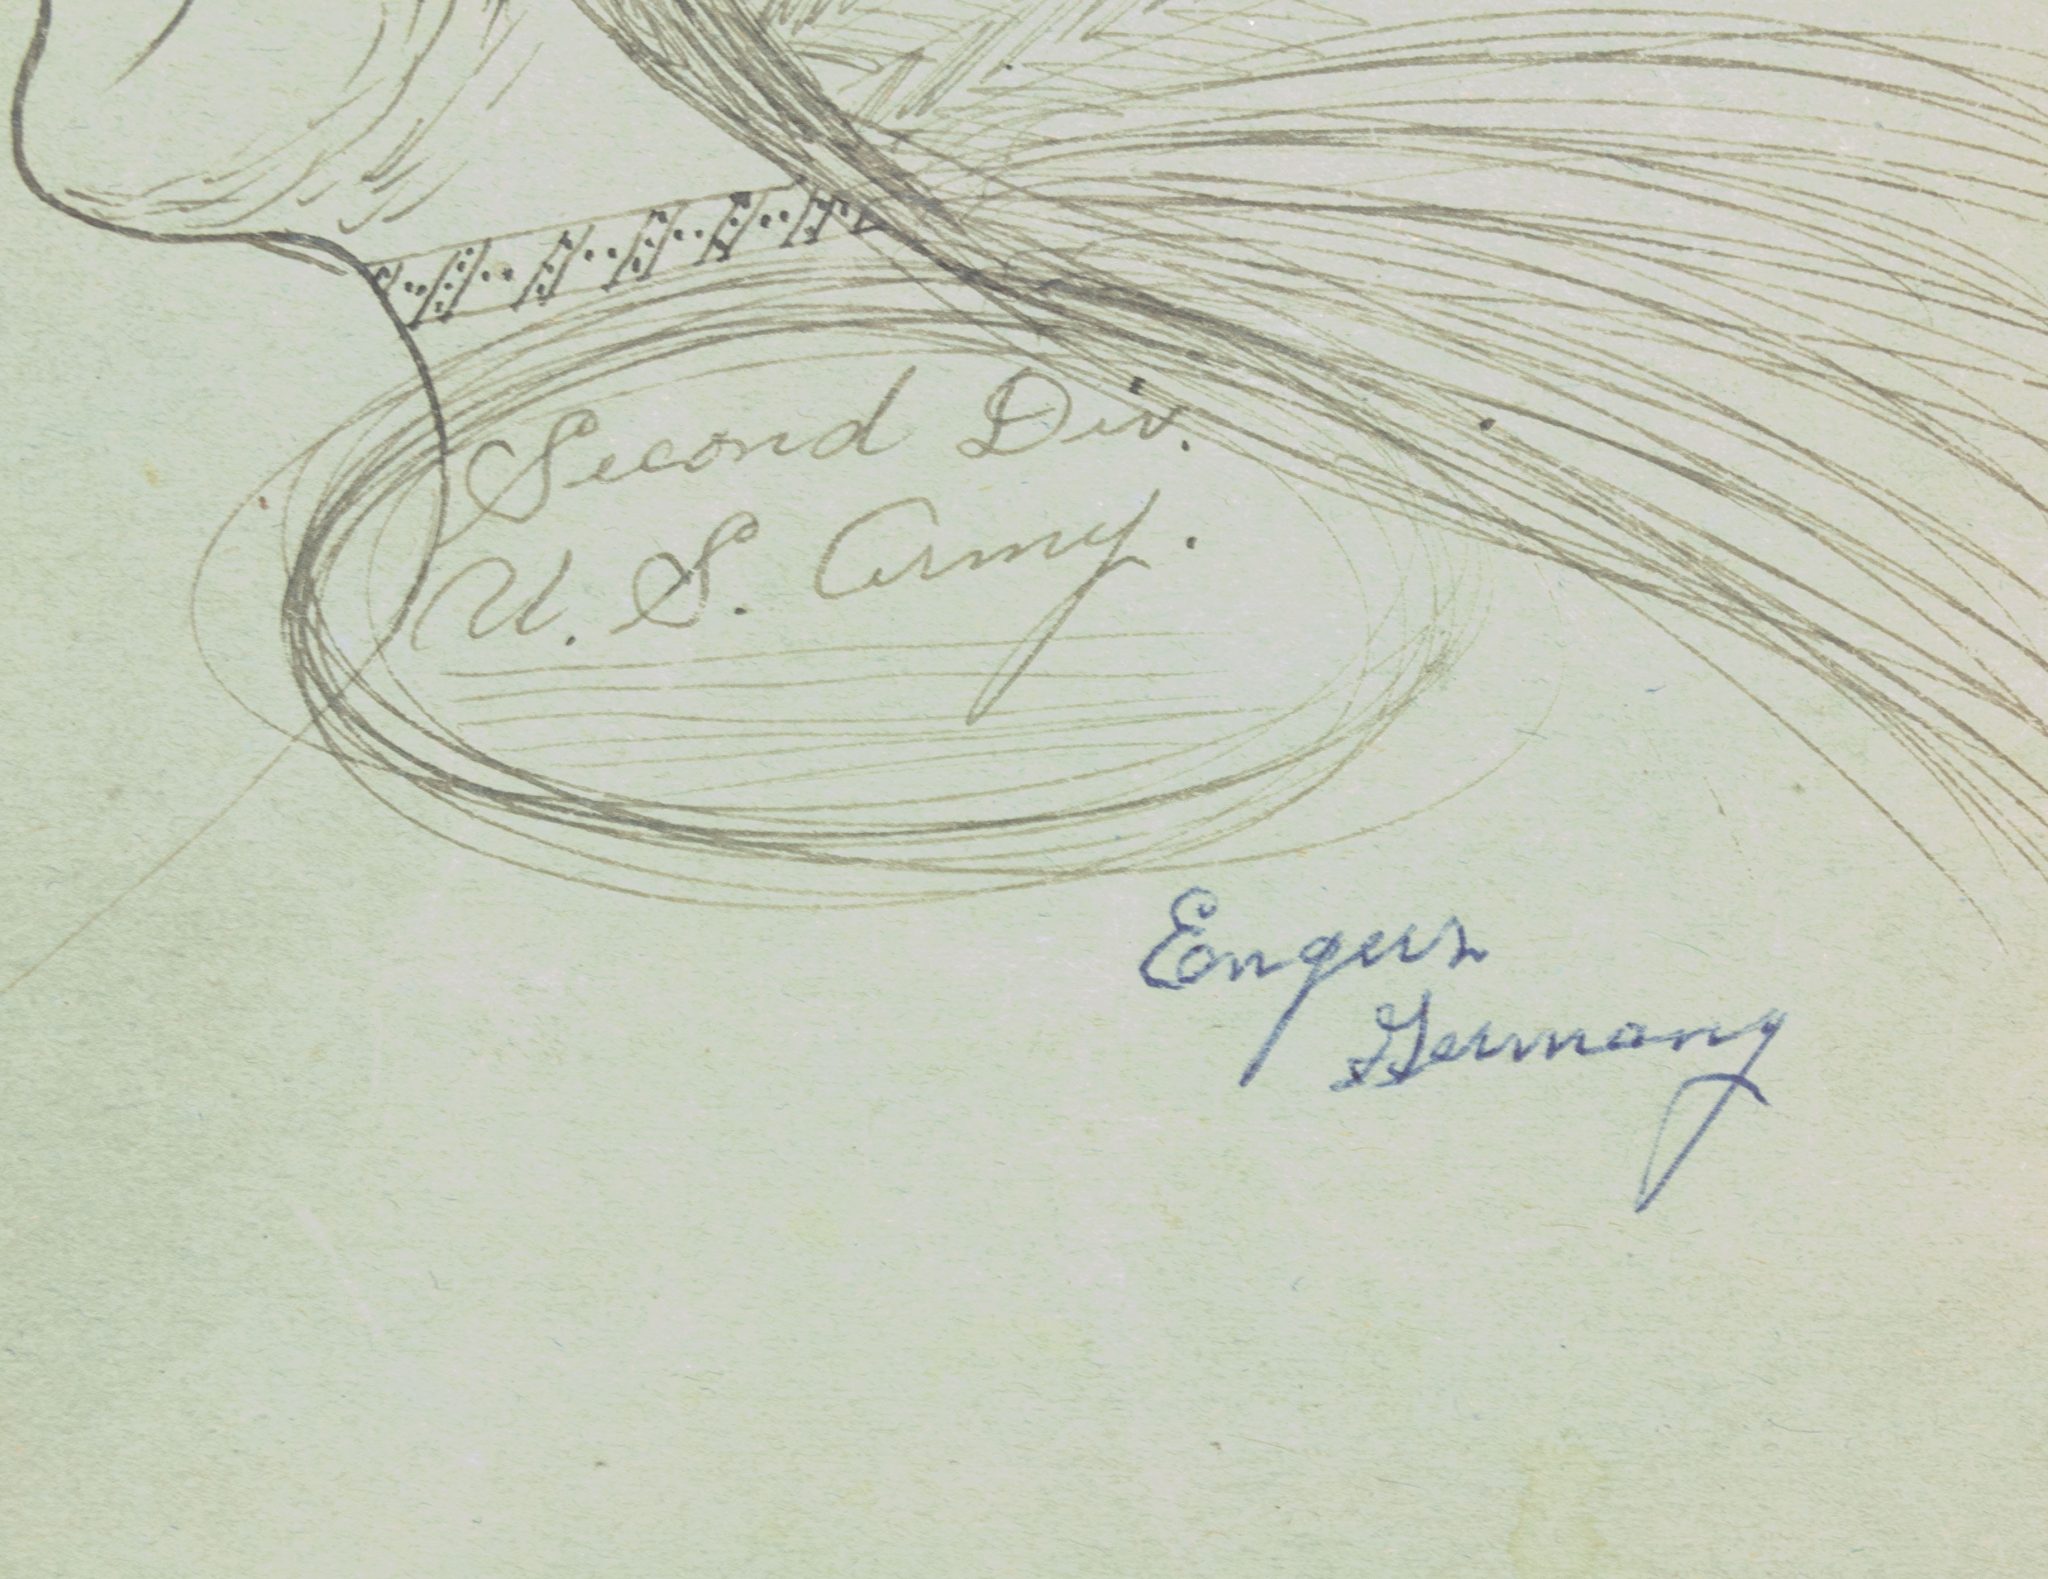 Second Div.
U. S. Army.
Engers
Germany